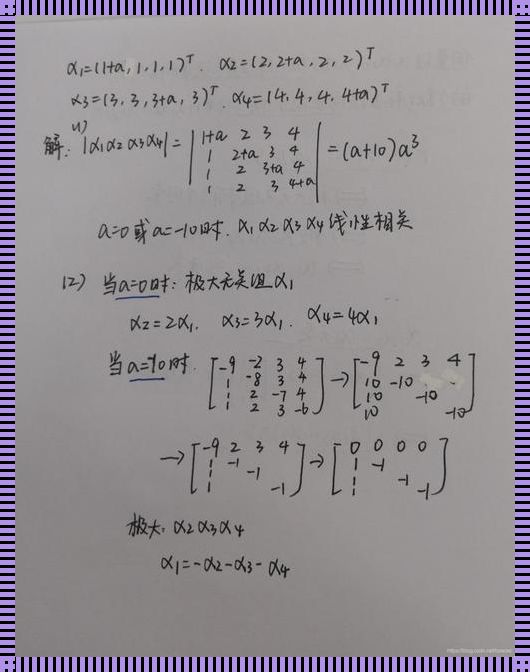 α₁=(1+a, 1, 1, 1)ᵀ. α₂=(2, 2+a, 2, 2)ᵀ
α₃=(3, 3, 3+a, 3)ᵀ. α₄=(4, 4, 4, 4+a)ᵀ
(1)
解: |α₁α₂α₃α₄| = | 1+a 2 3 4 | = (a+10)a³
1 2+a 3 4
1 2 3+a 4
1 2 3 4+a
a=0或a=-10时. α₁α₂α₃α₄线性相关
(2) 当a=0时: 极大无关组α₁
α₂=2α₁. α₃=3α₁. α₄=4α₁
当a=-10时. [-9 -2 3 4] → [-9 2 3 4]
1 -8 3 4 10 -10
1 2 -7 4 10 -10
1 2 3 -6 10 -10
→ [-9 2 3 4] → [0 0 0 0]
1 -1 1 -1
1 -1 1 -1
1 -1 1 -1
极大: α₂α₃α₄
α₁=-α₂-α₃-α₄